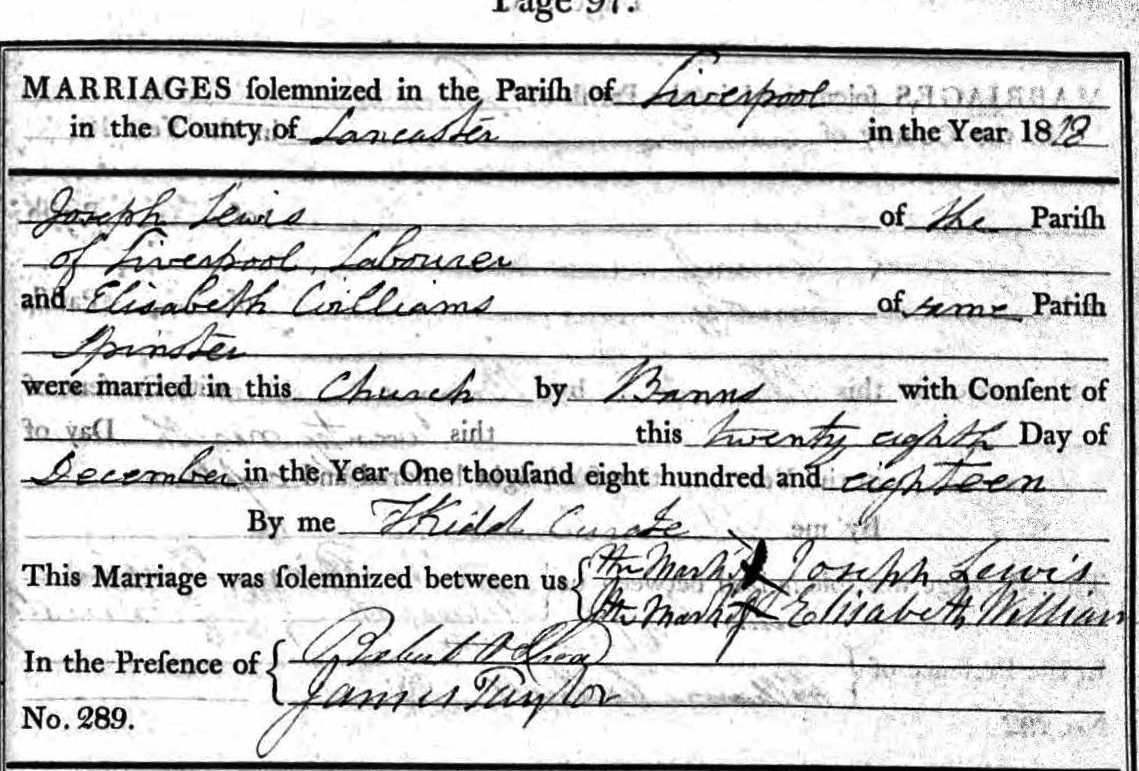 Page 97.
MARRIAGES ſolemnized in the Pariſh of Liverpool
in the County of Lancaster in the Year 1818
Joseph Lewis of the Pariſh
of Liverpool, Labourer
and Elisabeth Williams of same Pariſh
Spinster
were married in this Church by Banns with Conſent of
this twenty eighth Day of
December in the Year One thouſand eight hundred and eighteen
By me Kidd Curate
This Marriage was ſolemnized between us { the Mark of X Joseph Lewis
the Mark of X Elisabeth William
In the Preſence of { Robert
James Taylor
No. 289.